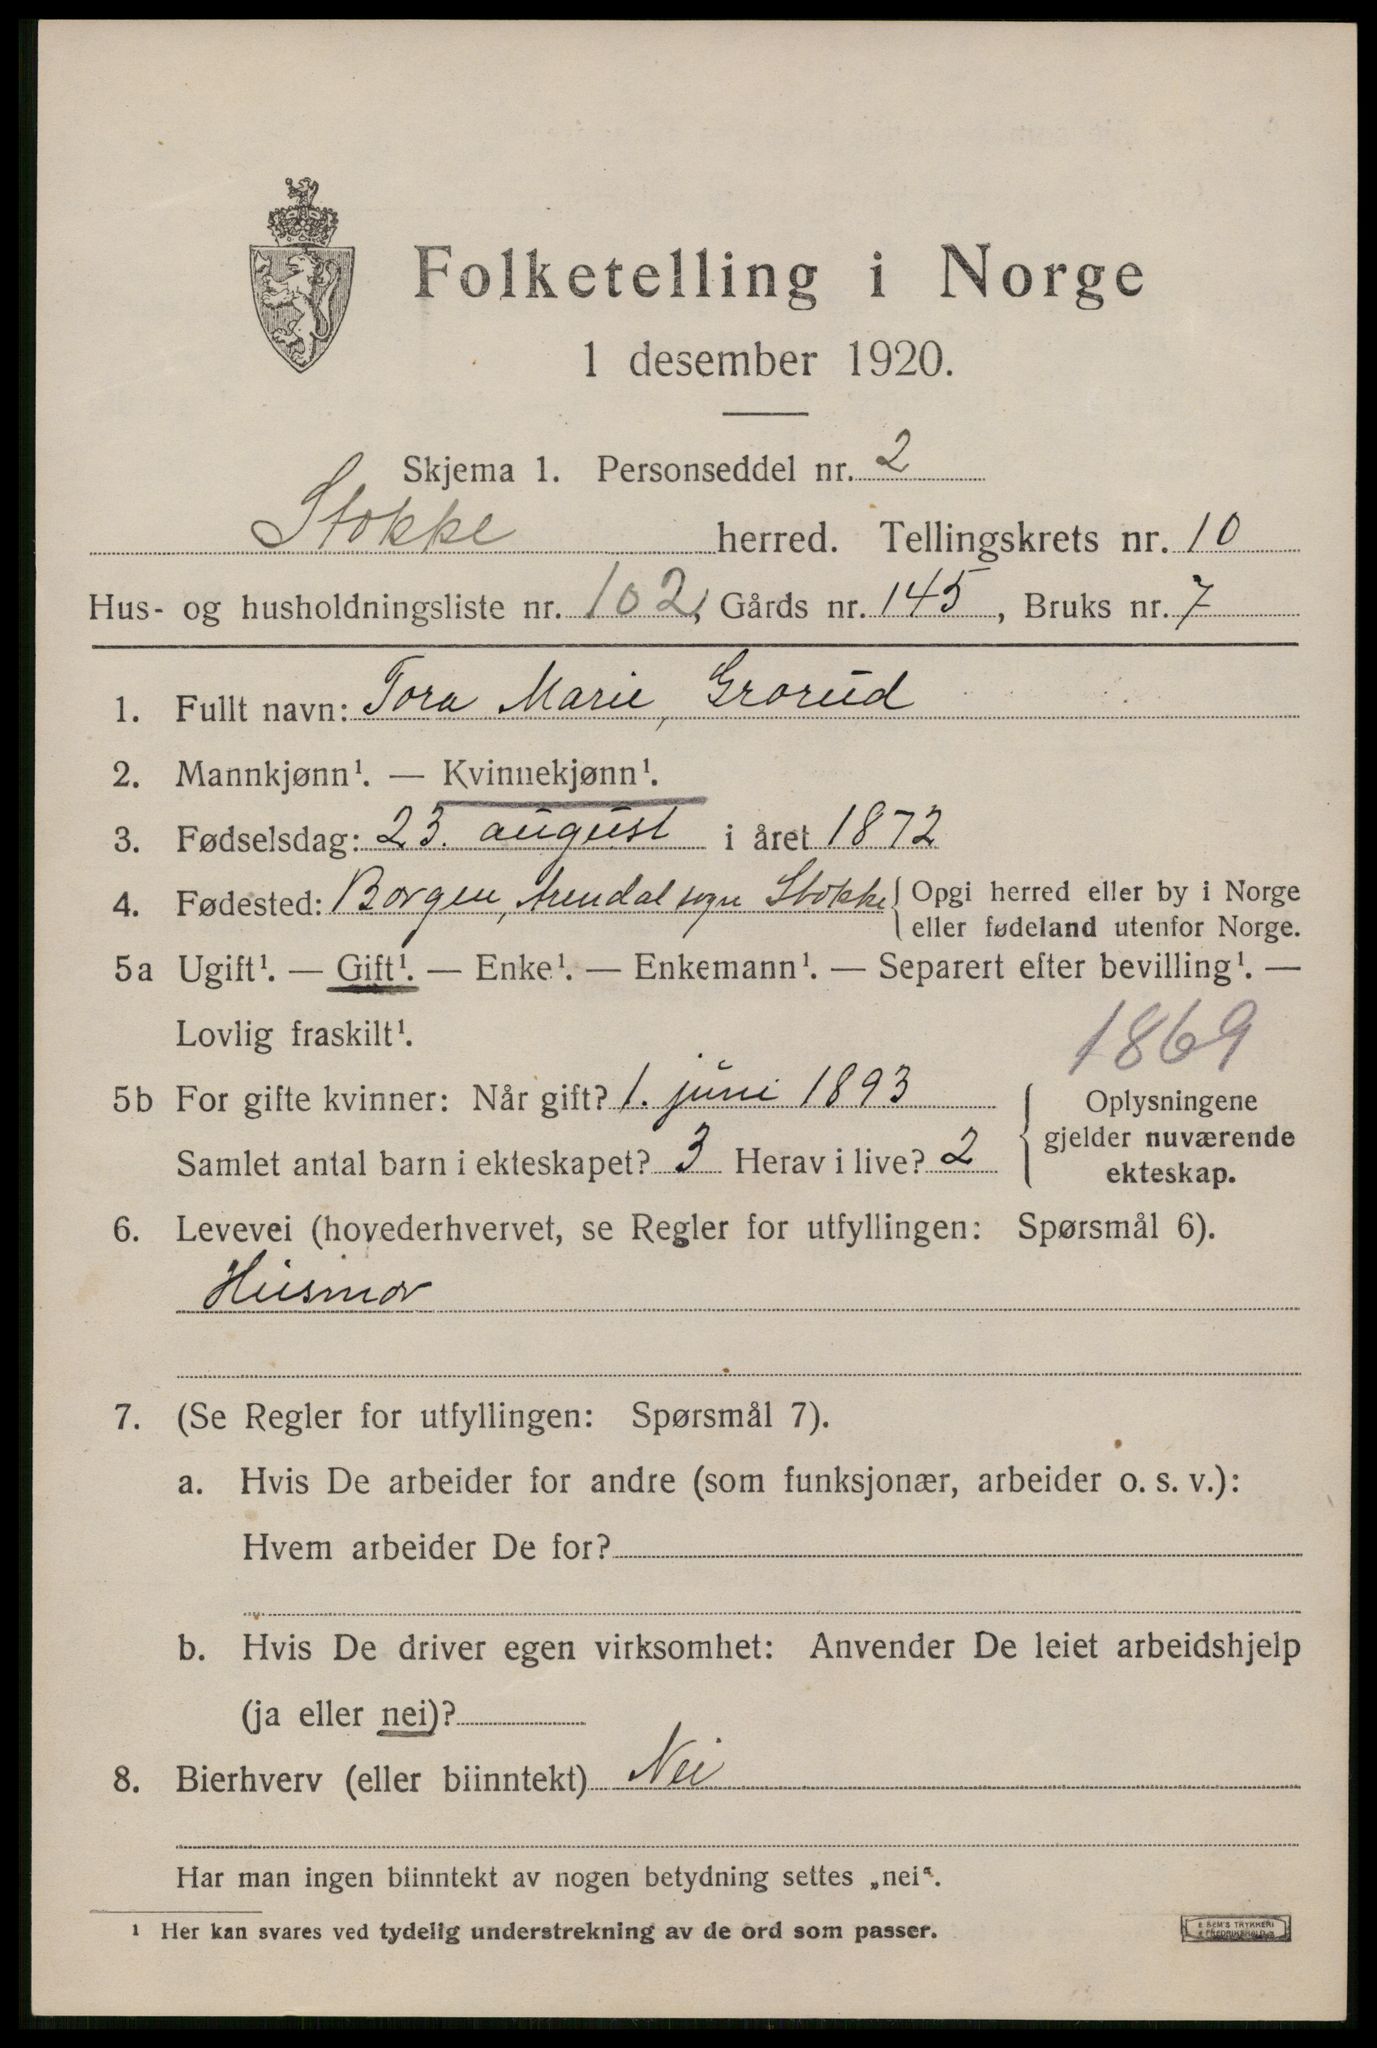 Folketelling i Norge
1 desember 1920.
Skjema 1. Personseddel nr. 2
Stokke herred. Tellingskrets nr. 10
Hus- og husholdningsliste nr. 102, Gårds nr. 145, Bruks nr. 7
1. Fullt navn: Tora Marie, Grorud
2. Mannkjønn¹. — Kvinnekjønn¹.
3. Fødselsdag: 23. august i året 1872
4. Fødested: Borgen, Arendal sogn Stokke { Opgi herred eller by i Norge
eller fødeland utenfor Norge.
5a Ugift¹. — Gift¹. — Enke¹. — Enkemann¹. — Separert efter bevilling¹. —
Lovlig fraskilt¹.
1869
5b For gifte kvinner: Når gift? 1. juni 1893 { Oplysningene
gjelder nuværende
Samlet antal barn i ekteskapet? 3 Herav i live? 2
ekteskap.
6. Levevei (hovederhvervet, se Regler for utfyllingen: Spørsmål 6).
Husmor
7. (Se Regler for utfyllingen: Spørsmål 7).
a. Hvis De arbeider for andre (som funksjonær, arbeider o. s. v.):
Hvem arbeider De for?
b. Hvis De driver egen virksomhet: Anvender De leiet arbeidshjelp
(ja eller nei)?
8. Bierhverv (eller biinntekt) Nei
Har man ingen biinntekt av nogen betydning settes „nei“.
¹ Her kan svares ved tydelig understrekning av de ord som passer.
E. SEM'S TRYKKERI
FREDRIKSHALD